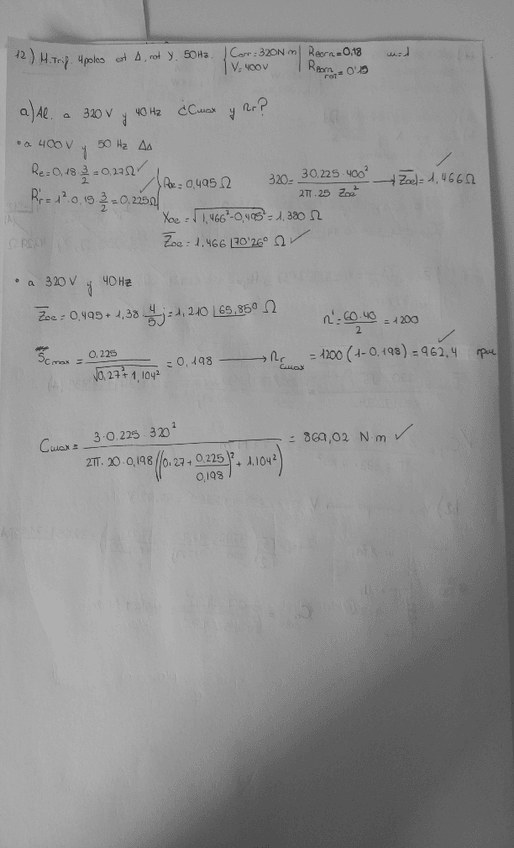 12) M. Trif. 4 polos est Δ, rot Y. 50Hz. Carr = 320 N m V = 400 V Rborn = 0,18 Rborn rot = 0'15 m = 1
a) Al. a 320 V y 40 Hz ¿Cmax y nr?
• a 400 V y 50 Hz ΔΔ
Re = 0,18 · 3/2 = 0,27 Ω ✓
R'r = 1² · 0,15 · 3/2 = 0,225 Ω ✓
Rcc = 0,495 Ω
320 = 3 · 0.225 · 400² / 2π · 25 · Zcc² → Zcc = 1,466 Ω ✓
Xcc = √1,466² - 0,495² = 1,380 Ω
Zcc = 1.466 |70'26° Ω ✓
• a 320 V y 40 Hz
Zcc = 0,495 + 1,38 · 4/5 j = 1,210 |65,85° Ω
n' = 60 · 40 / 2 = 1200
SCmax = 0.225 / √0,27² + 1,104² = 0,198 → nr Cmax = 1200 (1 - 0,198) = 962,4 rpm ✓
Cmax = 3 · 0.225 · 320² / 2π · 20 · 0,198 ((0,27 + 0,225/0,198)² + 1.104²) = 869,02 N m ✓